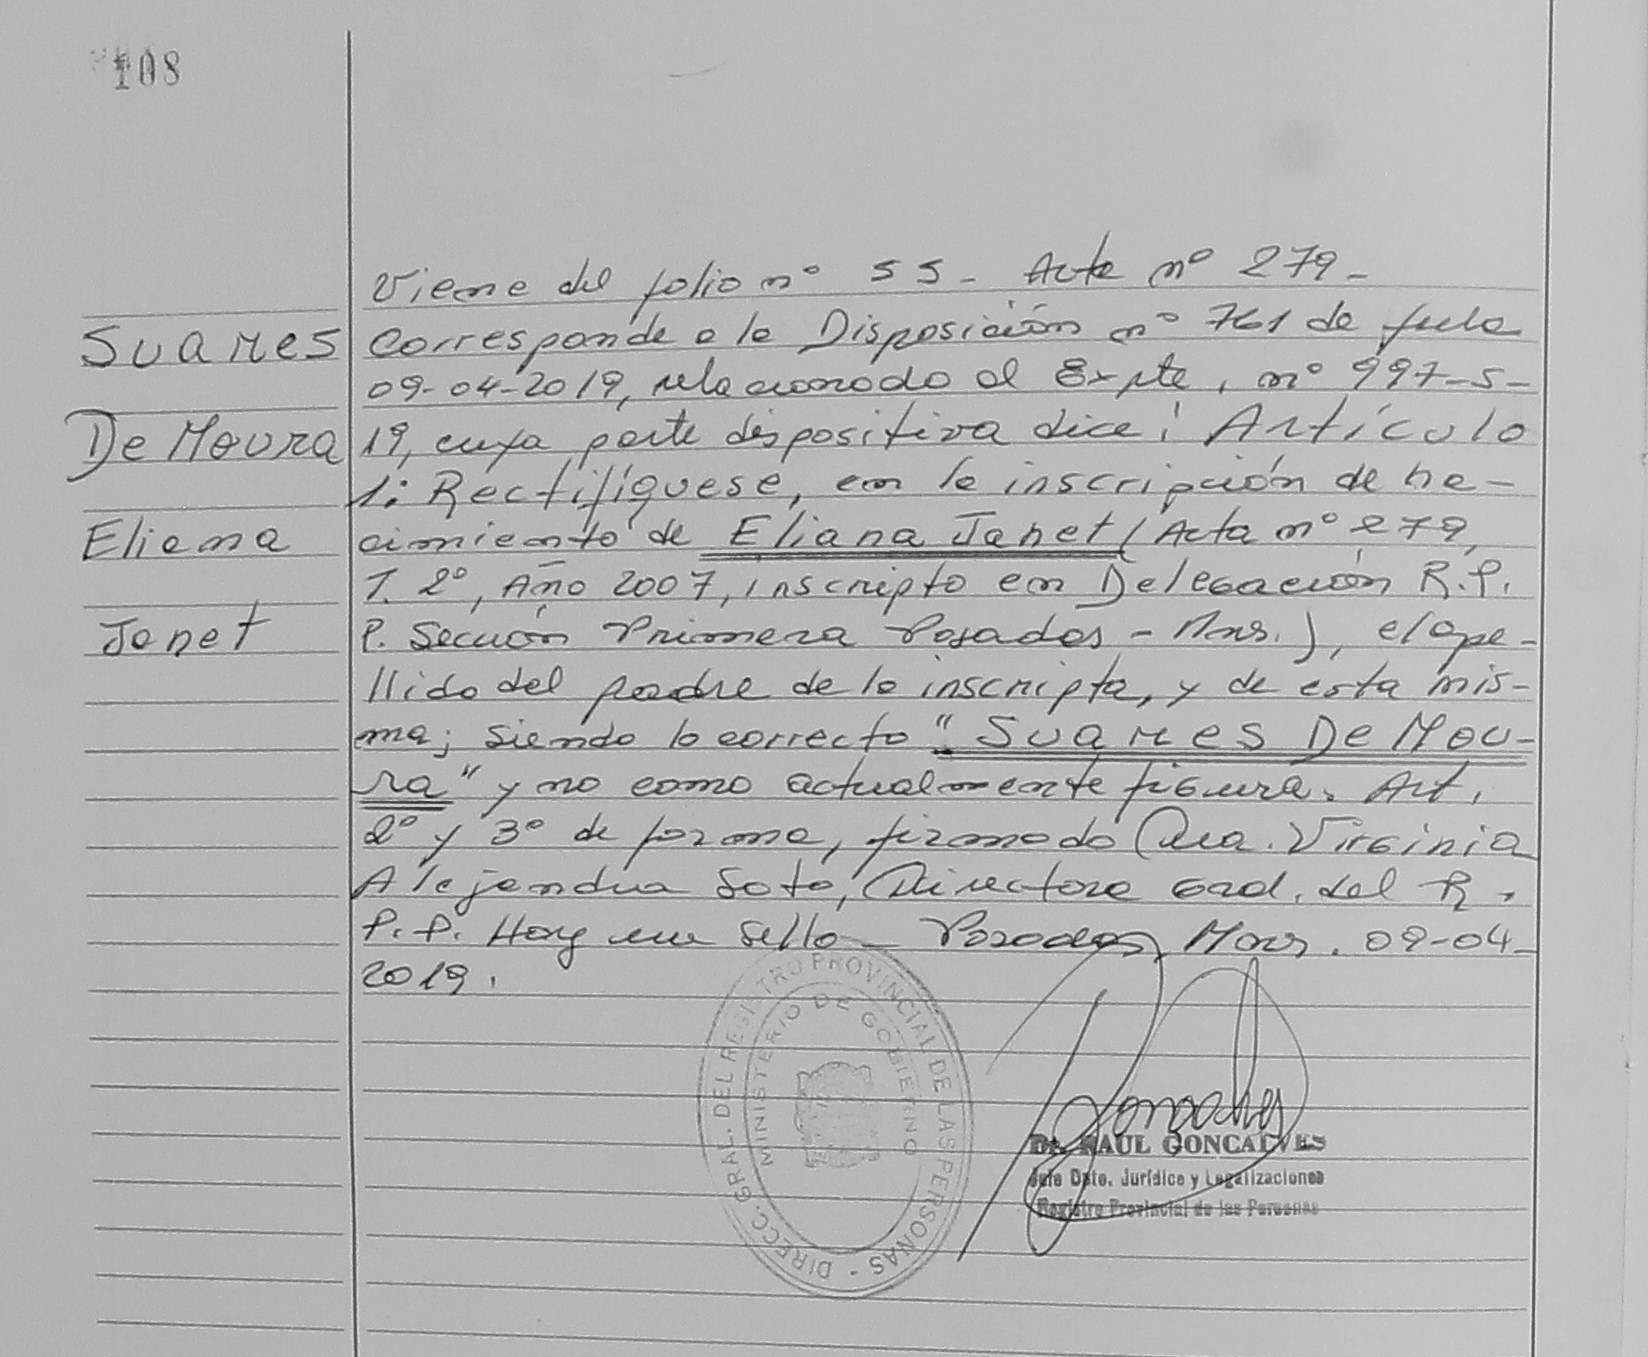 108
Viene del folio nº 55 - Acta nº 279 -
Suares
De Moura
Eliana
Janet
Corresponde a la Disposición nº 761 de fecha
09-04-2019, relacionado al Expte, nº 997-S-
19, cuya parte dispositiva dice: Artículo
1: Rectifíquese, en la inscripción de na-
cimiento de Eliana Janet (Acta nº 279,
T. 2º, Año 2007, inscripto en Delegación R.P.
P. Sección Primera Posadas - Mnes.), el ape-
llido del padre de la inscripta, y de esta mis-
ma; siendo lo correcto "Suares De Mou-
ra" y no como actualmente figura. Art.
2º y 3º de forma, firmado Dra. Virginia
Alejandra Soto, Directora Gral. del R.
P.P. Hay un sello - Posadas, Mnes. 09-04-
2019.
DIRECC. GRAL. DEL REGISTRO PROVINCIAL DE LAS PERSONAS -
MINISTERIO DE GOBIERNO
Dr. RAUL GONCALVES
Jefe Dpto. Jurídico y Legalizaciones
Registro Provincial de las Personas